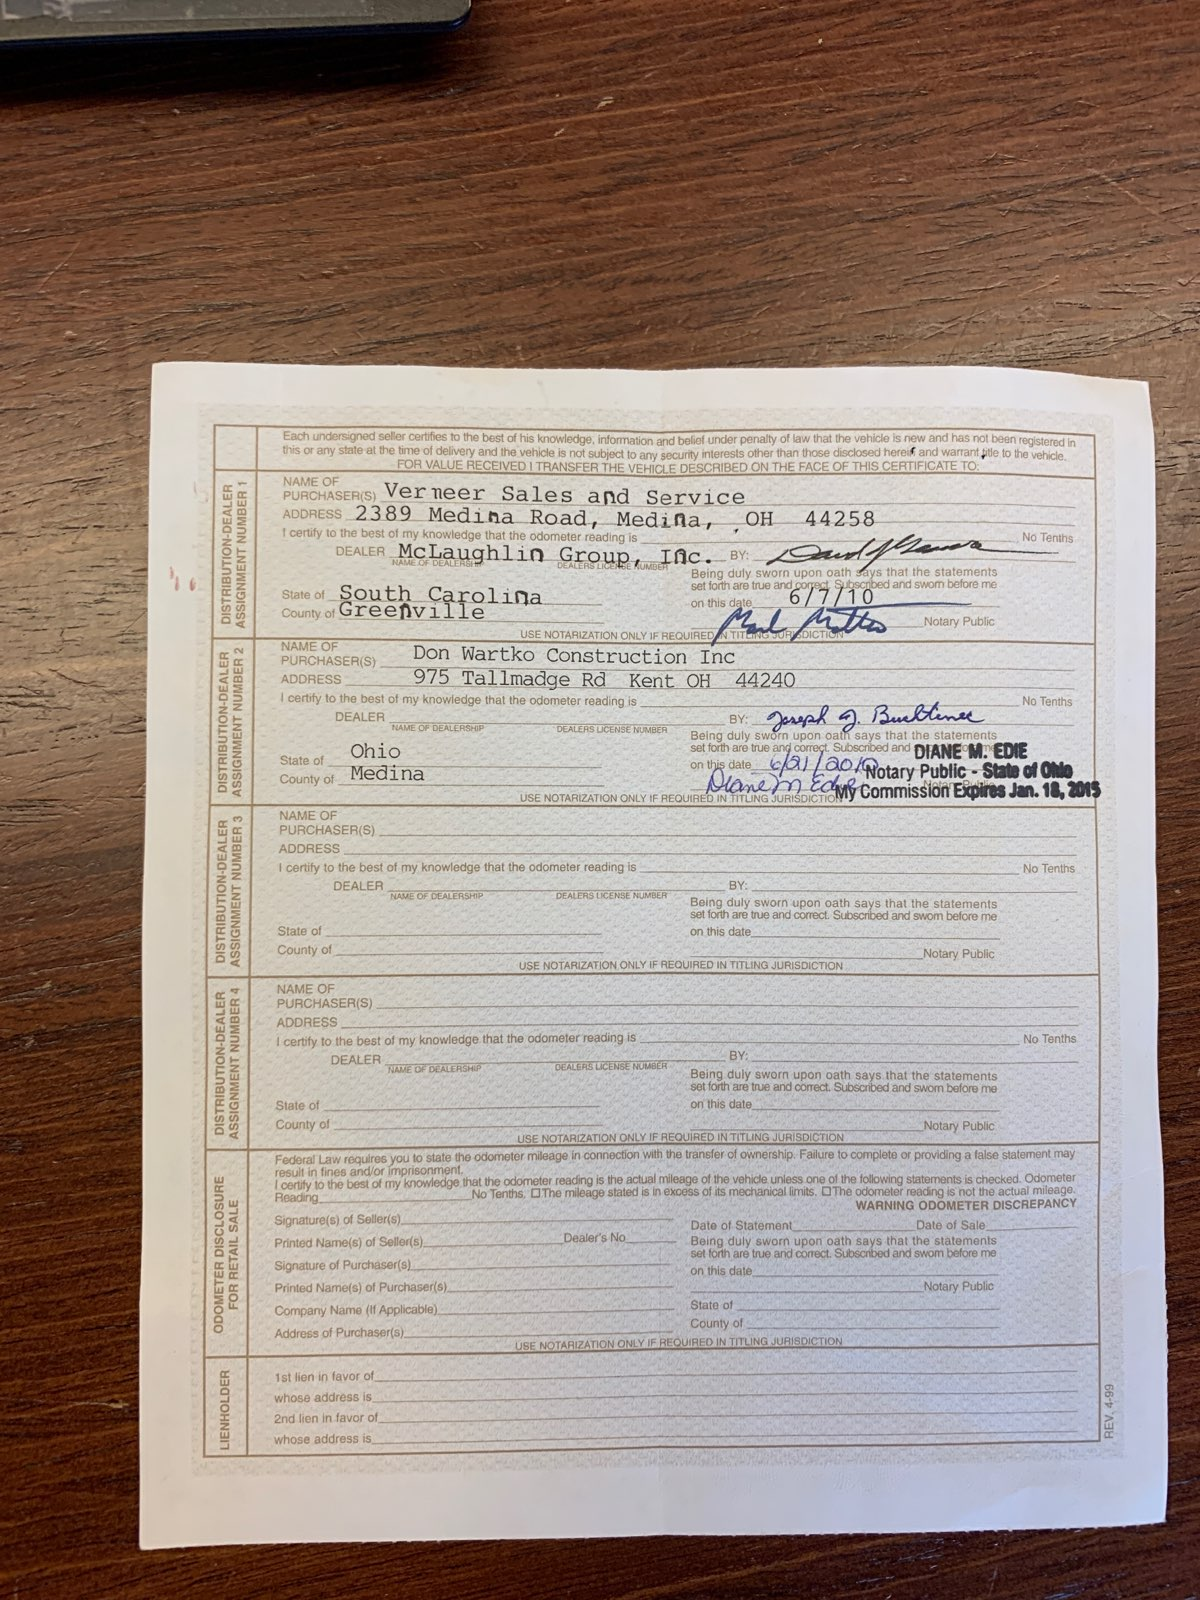 Each undersigned seller certifies to the best of his knowledge, information and belief under penalty of law that the vehicle is new and has not been registered in
this or any state at the time of delivery and the vehicle is not subject to any security interests other than those disclosed herein and warrant title to the vehicle.
FOR VALUE RECEIVED I TRANSFER THE VEHICLE DESCRIBED ON THE FACE OF THIS CERTIFICATE TO:
DISTRIBUTION-DEALER
ASSIGNMENT NUMBER 1
NAME OF
PURCHASER(S) Vermeer Sales and Service
ADDRESS 2389 Medina Road, Medina, OH 44258
I certify to the best of my knowledge that the odometer reading is No Tenths
DEALER McLaughlin Group, Inc. BY:
NAME OF DEALERSHIP DEALERS LICENSE NUMBER
Being duly sworn upon oath says that the statements
set forth are true and correct. Subscribed and sworn before me
State of South Carolina on this date 6/7/10
County of Greenville Notary Public
USE NOTARIZATION ONLY IF REQUIRED IN TITLING JURISDICTION
DISTRIBUTION-DEALER
ASSIGNMENT NUMBER 2
NAME OF
PURCHASER(S) Don Wartko Construction Inc
ADDRESS 975 Tallmadge Rd Kent OH 44240
I certify to the best of my knowledge that the odometer reading is No Tenths
DEALER BY: Joseph J.
NAME OF DEALERSHIP DEALERS LICENSE NUMBER
Being duly sworn upon oath says that the statements
set forth are true and correct. Subscribed and
DIANE M. EDIE
State of Ohio on this date 6/21/2010
Notary Public - State of Ohio
County of Medina Diane M Edie
My Commission Expires Jan. 18, 2015
USE NOTARIZATION ONLY IF REQUIRED IN TITLING JURISDICTION
DISTRIBUTION-DEALER
ASSIGNMENT NUMBER 3
NAME OF
PURCHASER(S)
ADDRESS
I certify to the best of my knowledge that the odometer reading is No Tenths
DEALER BY:
NAME OF DEALERSHIP DEALERS LICENSE NUMBER
Being duly sworn upon oath says that the statements
set forth are true and correct. Subscribed and sworn before me
State of on this date
County of Notary Public
USE NOTARIZATION ONLY IF REQUIRED IN TITLING JURISDICTION
DISTRIBUTION-DEALER
ASSIGNMENT NUMBER 4
NAME OF
PURCHASER(S)
ADDRESS
I certify to the best of my knowledge that the odometer reading is No Tenths
DEALER BY:
NAME OF DEALERSHIP DEALERS LICENSE NUMBER
Being duly sworn upon oath says that the statements
set forth are true and correct. Subscribed and sworn before me
State of on this date
County of Notary Public
USE NOTARIZATION ONLY IF REQUIRED IN TITLING JURISDICTION
ODOMETER DISCLOSURE
FOR RETAIL SALE
Federal Law requires you to state the odometer mileage in connection with the transfer of ownership. Failure to complete or providing a false statement may
result in fines and/or imprisonment.
I certify to the best of my knowledge that the odometer reading is the actual mileage of the vehicle unless one of the following statements is checked. Odometer
Reading No Tenths. ☐ The mileage stated is in excess of its mechanical limits. ☐ The odometer reading is not the actual mileage.
WARNING ODOMETER DISCREPANCY
Signature(s) of Seller(s) Date of Statement Date of Sale
Printed Name(s) of Seller(s) Dealer's No Being duly sworn upon oath says that the statements
set forth are true and correct. Subscribed and sworn before me
Signature of Purchaser(s) on this date
Printed Name(s) of Purchaser(s) Notary Public
Company Name (If Applicable) State of
Address of Purchaser(s) County of
USE NOTARIZATION ONLY IF REQUIRED IN TITLING JURISDICTION
LIENHOLDER
1st lien in favor of
whose address is
2nd lien in favor of
whose address is
REV. 4-99